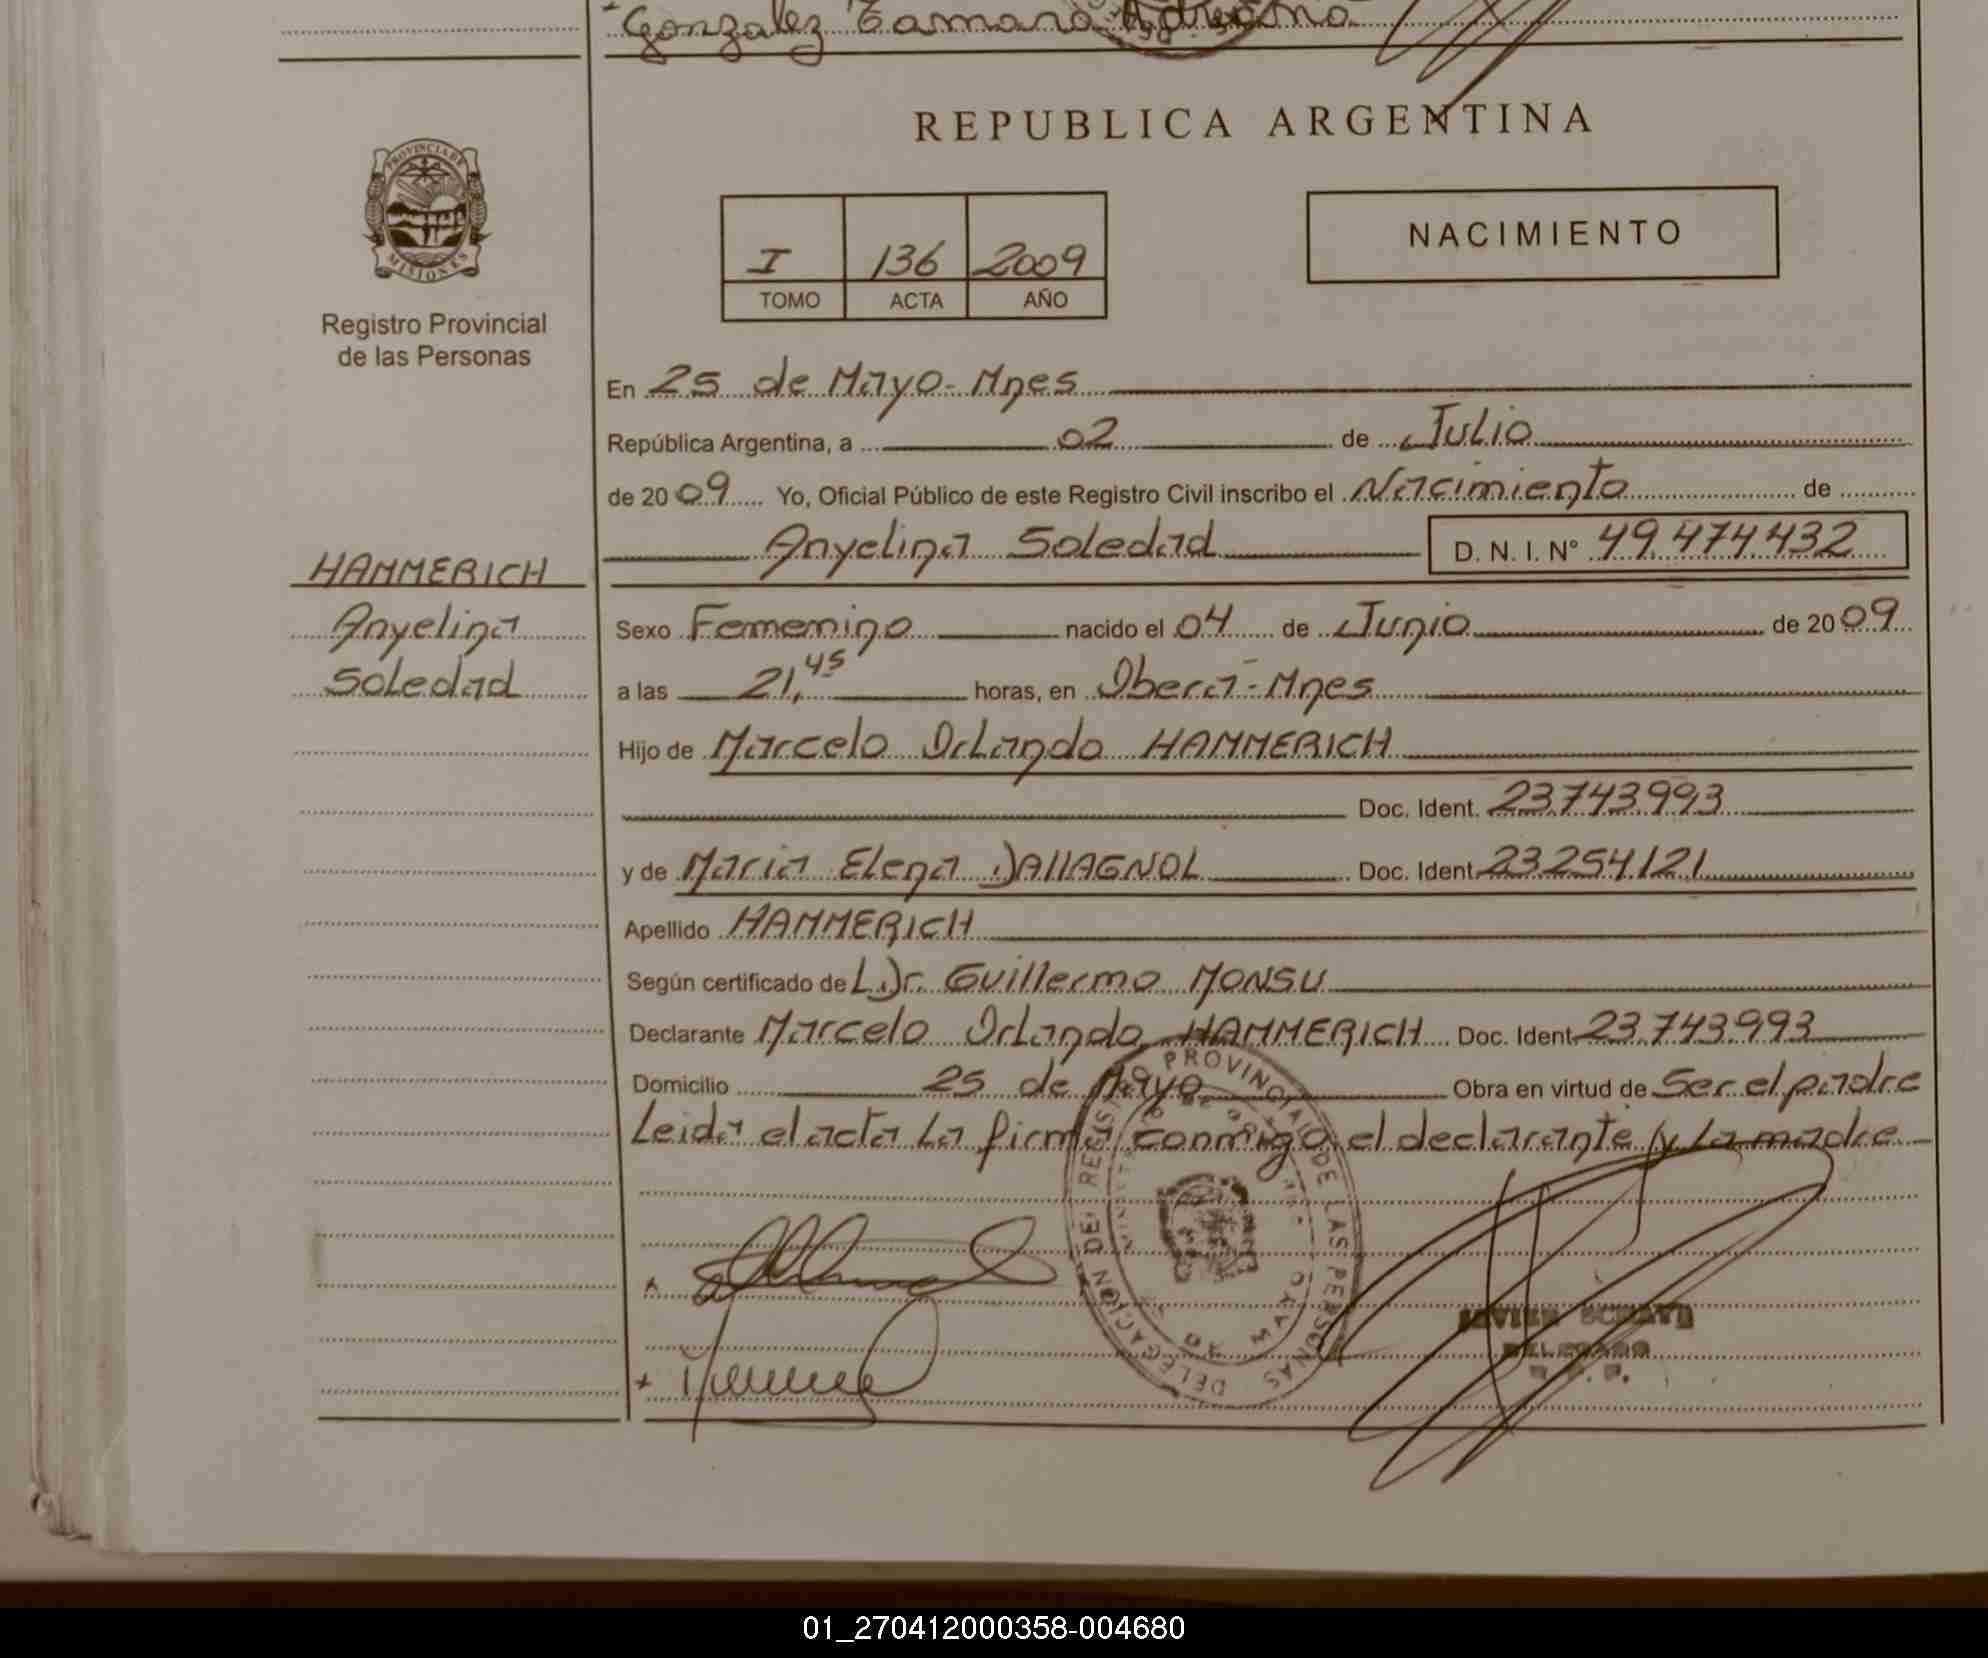 Gonzalez Tamara Adriana
REPUBLICA ARGENTINA
PROVINCIA DE
MISIONES
Registro Provincial
de las Personas
I 136 2009
TOMO ACTA AÑO
NACIMIENTO
En 25 de Mayo-Mnes
República Argentina, a 02 de Julio
de 2009 Yo, Oficial Público de este Registro Civil inscribo el Nacimiento de
Anyelina Soledad D. N. I. N° 49.474.432
HAMMERICH
Anyelina
Soledad
Sexo Fememino nacido el 04 de Junio de 2009
a las 21,45 horas, en Oberá-Mnes
Hijo de Marcelo Orlando HAMMERICH
Doc. Ident. 23.743.993
y de Maria Elena DAllAGNOL Doc. Ident. 23.254.121
Apellido HAMMERICH
Según certificado de L Dr. Guillermo MONSU
Declarante Marcelo Orlando HAMMERICH Doc. Ident. 23.743.993
Domicilio 25 de Mayo Obra en virtud de Ser el padre
Leida el acta La firma conmigo el declarante y La madre
DELEGACION DEL REGISTRO PROVINCIAL DE LAS PERSONAS
25 DE MAYO
JAVIER
DELEGADO
01_270412000358-004680